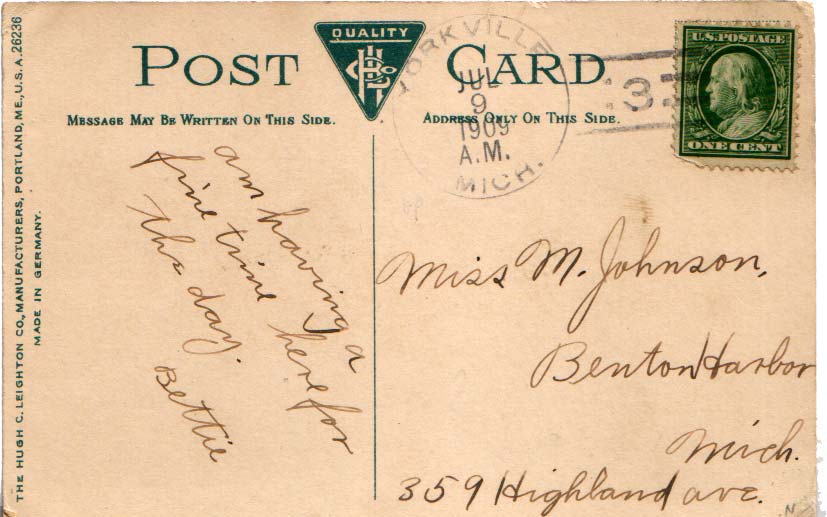 THE HUGH C. LEIGHTON CO., MANUFACTURERS, PORTLAND, ME., U.S.A. 26236
MADE IN GERMANY.
POST CARD
QUALITY
MESSAGE MAY BE WRITTEN ON THIS SIDE.
ADDRESS ONLY ON THIS SIDE.
YORKVILLE
JUL
9
1909
A.M.
MICH.
3
U.S. POSTAGE
ONE CENT
am having a
fine time here for
the day.
Bettie
Miss M. Johnson,
Benton Harbor
Mich.
359 Highland ave.